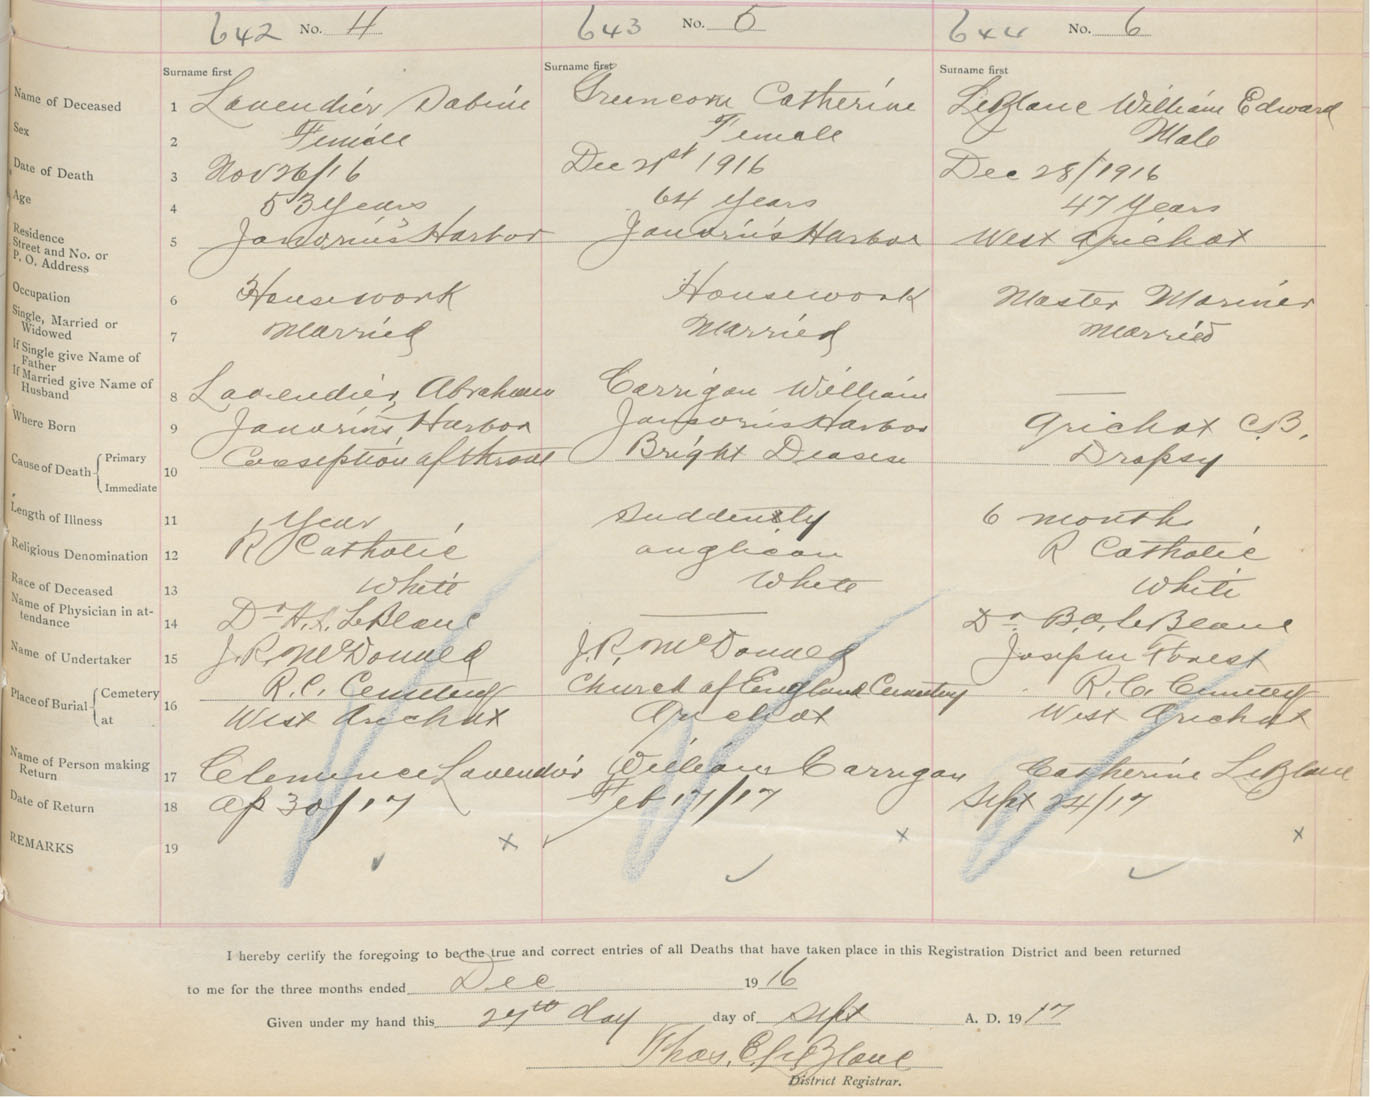 642 No. 4 643 No. 5 644 No. 6
Surname first Surname first Surname first
Name of Deceased 1 Lavendier Sabine Greencorn Catherine LeBlanc William Edward
Sex 2 Female Female Male
Date of Death 3 Nov 26/16 Dec 21st 1916 Dec 28/1916
Age 4 53 Years 64 Years 47 Years
Residence
Street and No. or 5 Janvrin's Harbor Janvrin's Harbor West Arichat
P. O. Address
Occupation 6 Housework Housework Master Mariner
Single, Married or
Widowed 7 Married Married Married
If Single give Name of
Father
If Married give Name of
Husband 8 Lavendier, Abraham Carrigan William —
Where Born 9 Janvrins Harbor Janvrins Harbor Arichat C.B.
Cause of Death Primary
Immediate 10 of throat Bright Deasese Dropsy
Length of Illness 11 1 Year Suddenly 6 months
Religious Denomination 12 R Catholic anglican R Catholic
Race of Deceased 13 White White White
Name of Physician in at-
tendance 14 Dr LeBlanc — Dr LeBlanc
Name of Undertaker 15 J. R. McDonald J. R. McDonald Joseph Forest
Place of Burial Cemetery R. C. Cemetery Church of England Cemetery R. C. Cemetery
at 16 West Arichat Arichat West Arichat
Name of Person making
Return 17 Clemence Lavendier William Carrigan Catherine LeBlanc
Date of Return 18 Ap 30/17 Feb 17/17 Sept 24/17
REMARKS 19 x x x
I hereby certify the foregoing to be the true and correct entries of all Deaths that have taken place in this Registration District and been returned
to me for the three months ended Dec 1916
Given under my hand this 27th day day of Sept A. D. 1917
Thos. E. LeBlanc
District Registrar.